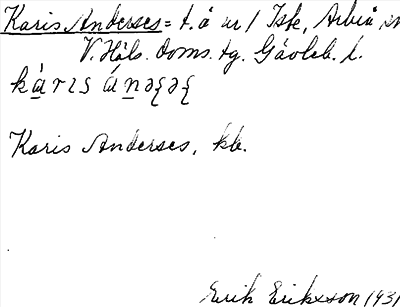 Karis Anderses = t.å nr 1 Isk, Arbrå sn
V. Häls. doms. tg. Gävleb. l.
kárıs ánəʂəʂ
Karis Anderses, kb.
Erik Eriksson 1931